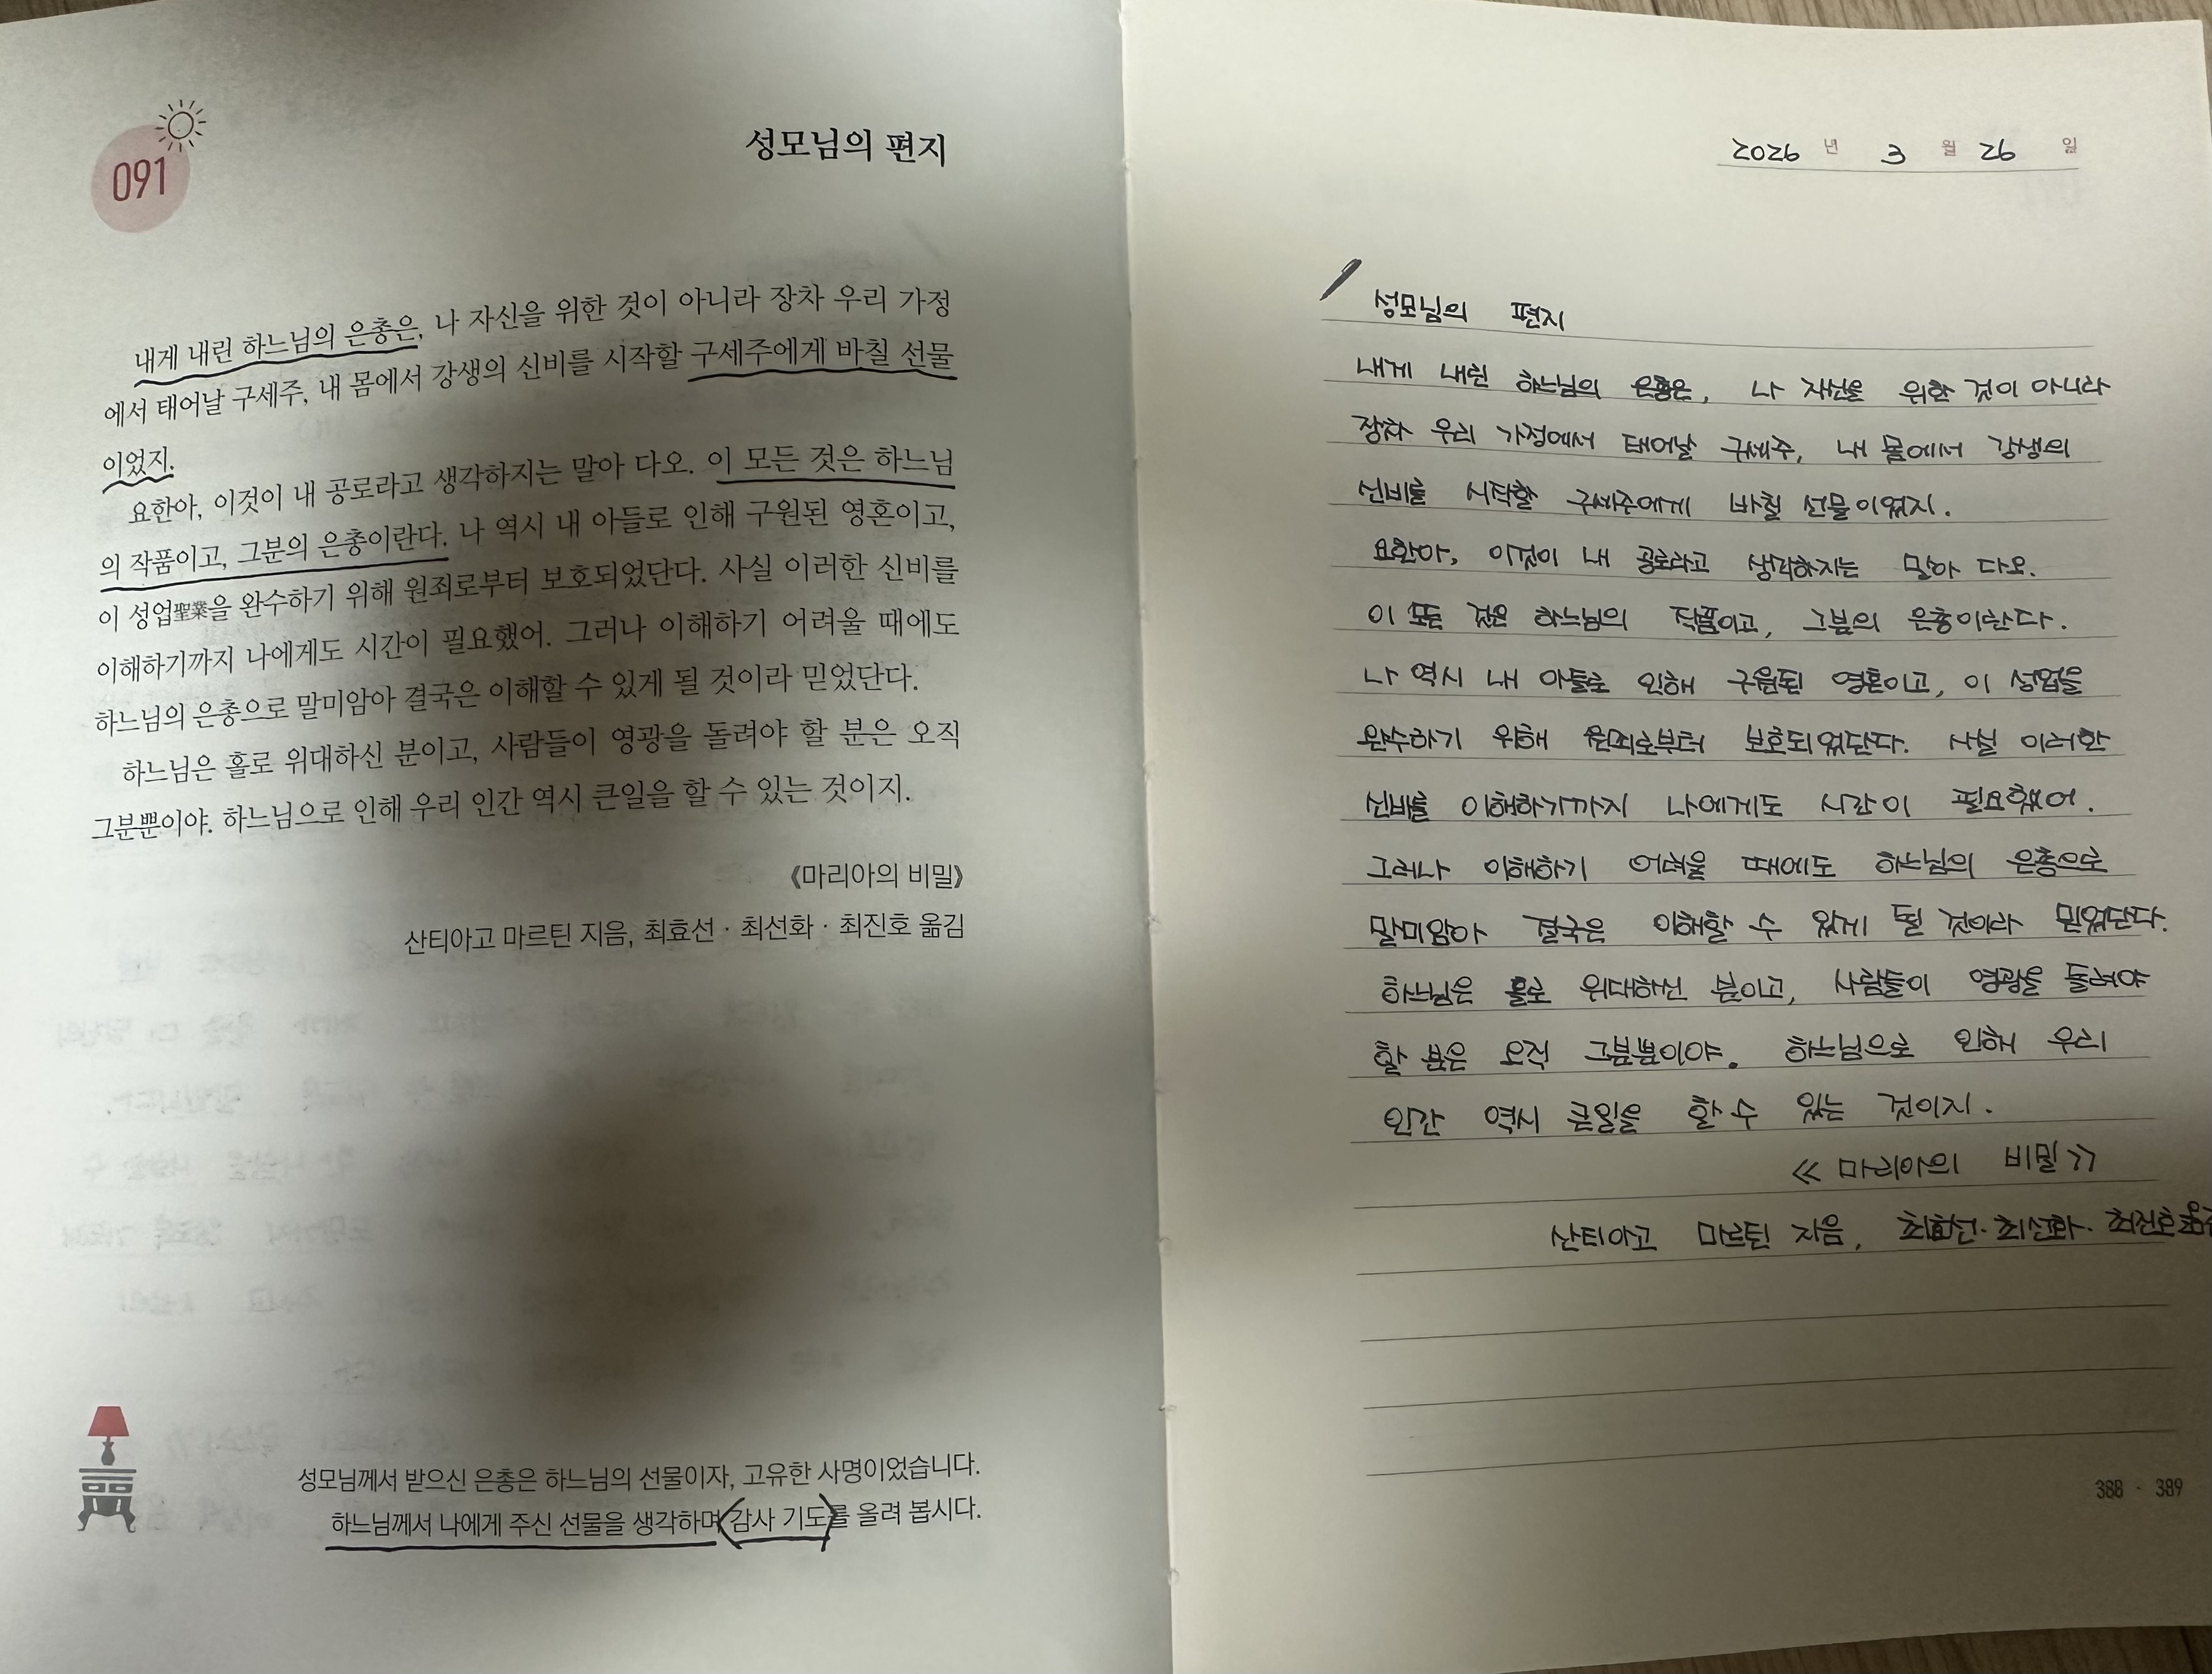 091
성모님의 편지
내게 내린 하느님의 은총은, 나 자신을 위한 것이 아니라 장차 우리 가정
에서 태어날 구세주, 내 몸에서 강생의 신비를 시작할 구세주에게 바칠 선물
이었지.
요한아, 이것이 내 공로라고 생각하지는 말아 다오. 이 모든 것은 하느님
의 작품이고, 그분의 은총이란다. 나 역시 내 아들로 인해 구원된 영혼이고,
이 성업聖業을 완수하기 위해 원죄로부터 보호되었단다. 사실 이러한 신비를
이해하기까지 나에게도 시간이 필요했어. 그러나 이해하기 어려울 때에도
하느님의 은총으로 말미암아 결국은 이해할 수 있게 될 것이라 믿었단다.
하느님은 홀로 위대하신 분이고, 사람들이 영광을 돌려야 할 분은 오직
그분뿐이야. 하느님으로 인해 우리 인간 역시 큰일을 할 수 있는 것이지.
《마리아의 비밀》
산티아고 마르틴 지음, 최효선 · 최선화 · 최진호 옮김
성모님께서 받으신 은총은 하느님의 선물이자, 고유한 사명이었습니다.
하느님께서 나에게 주신 선물을 생각하며 감사 기도를 올려 봅시다.
2026 년 3 월 26 일
성모님의 편지
내게 내린 하느님의 은총은, 나 자신을 위한 것이 아니라
장차 우리 가정에서 태어날 구세주, 내 몸에서 강생의
신비를 시작할 구세주에게 바칠 선물이었지.
요한아, 이것이 내 공로라고 생각하지는 말아 다오.
이 모든 것은 하느님의 작품이고, 그분의 은총이란다.
나 역시 내 아들로 인해 구원된 영혼이고, 이 성업을
완수하기 위해 원죄로부터 보호되었단다. 사실 이러한
신비를 이해하기까지 나에게도 시간이 필요했어.
그러나 이해하기 어려울 때에도 하느님의 은총으로
말미암아 결국은 이해할 수 있게 될 것이라 믿었단다.
하느님은 홀로 위대하신 분이고, 사람들이 영광을 돌려야
할 분은 오직 그분뿐이야. 하느님으로 인해 우리
인간 역시 큰일을 할 수 있는 것이지.
《마리아의 비밀》
산티아고 마르틴 지음, 최효선 · 최선화 · 최진호
388 · 389